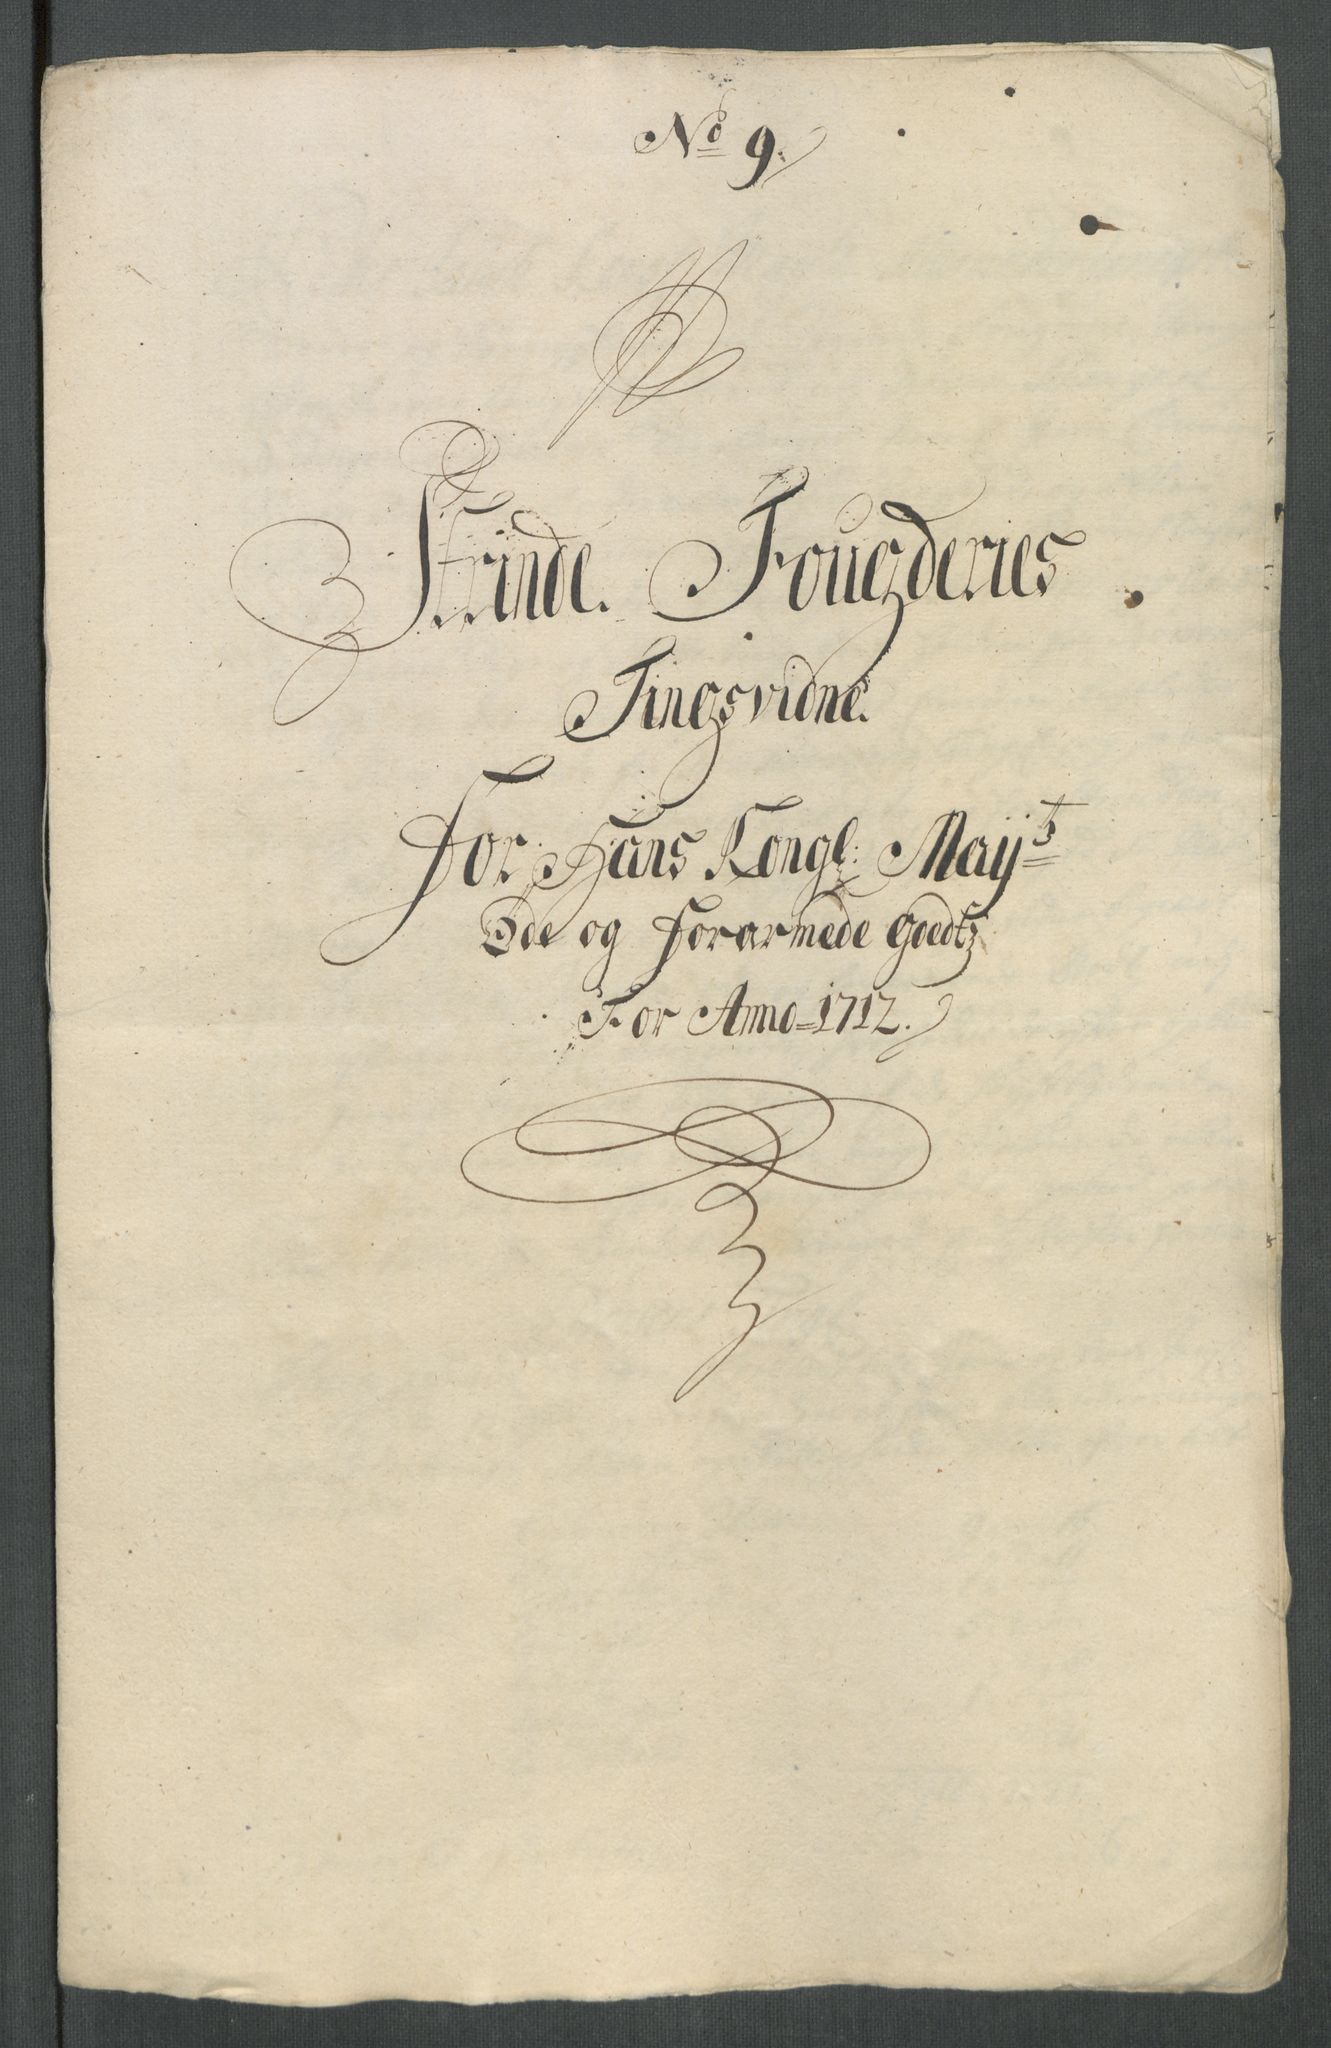 No 9.
Strinde. Fougderies
Tingsvidne.
For Hans Kongl: Mayts
Öde og forarmede Goedtz
For Anno=1712.